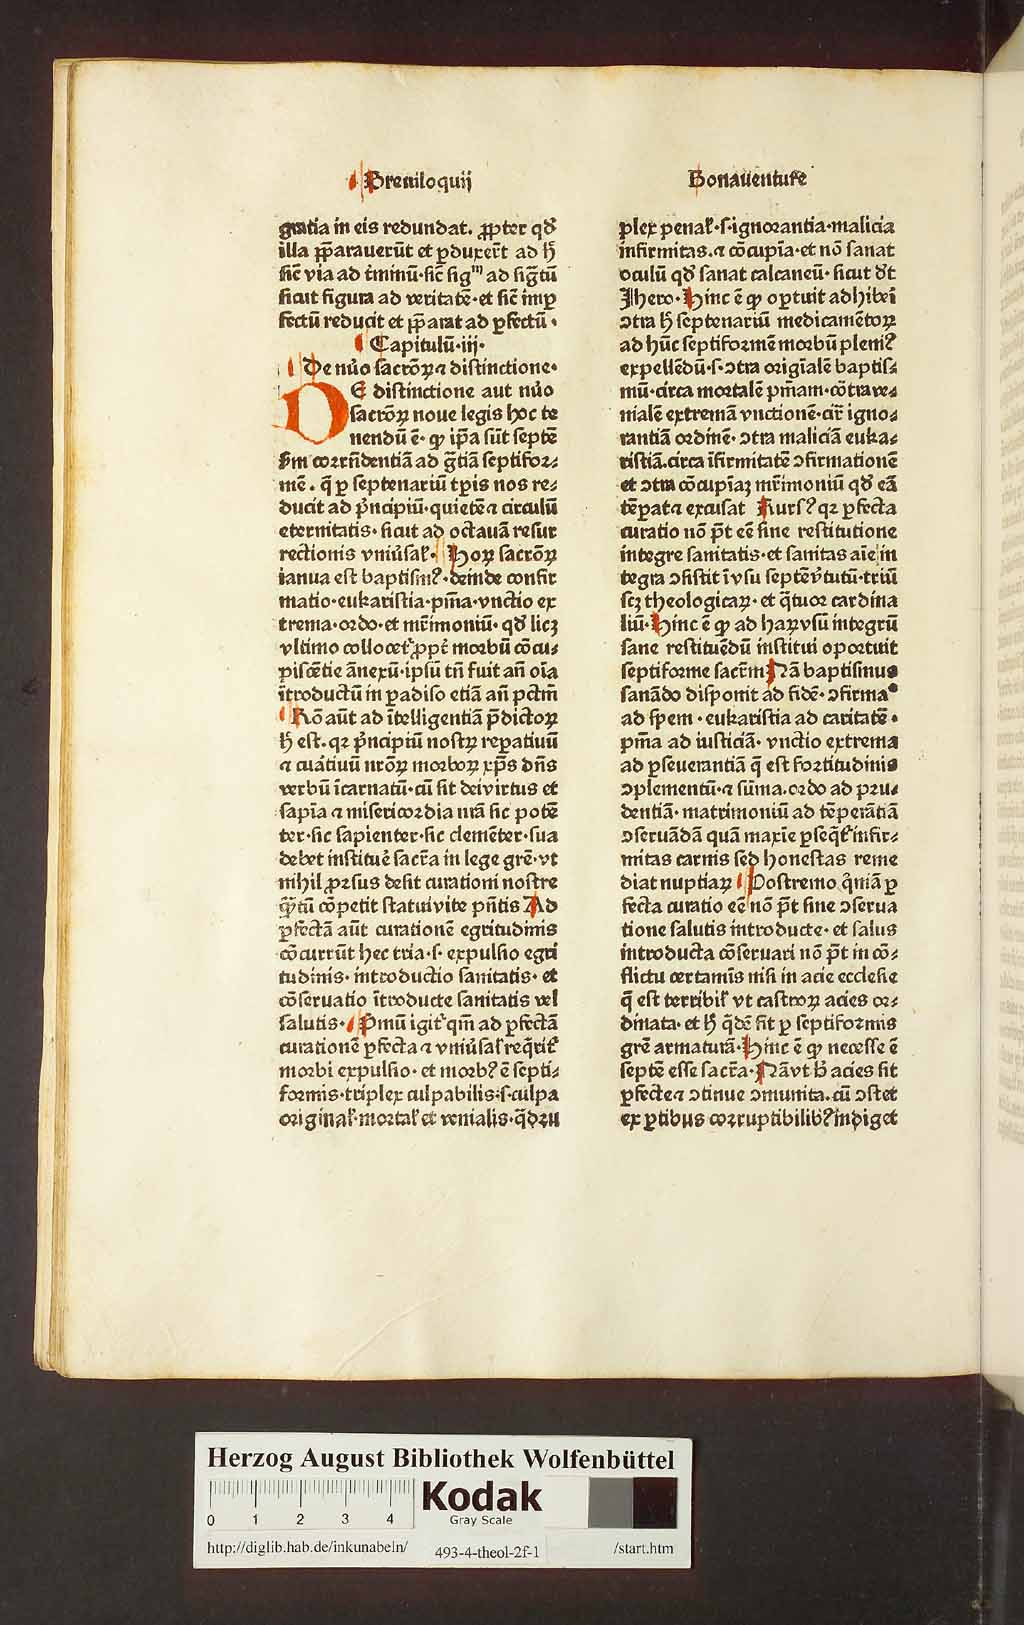 Breuiloquij
gratia in eis redundat. ꝓpter qđ
illa p̄parauerūt et ꝑduxer̄t ad ħ
sic̄ via ad t̄minū·sic̄ sigᵐ ad sigt̄ū
sicut figura ad veritatē·et sic̄ imꝑ
fectū reducit et p̄parat ad ꝑfectū·
Capitulū·iij·
De nūo sacr̄oꝝ ⁊ distinctione·
DE distinctione aut nūo
sacr̄oꝝ noue legis hoc te
nendū ē· ꝙ ip̄a sūt septē
sm̄ corrn̄dentiā ad gr̄tiā septifor⸗
mē. q̄ ꝑ septenariū tꝑis nos re⸗
ducit ad p̓ncipiū·quietē ⁊ circulū
eternitatis·sicut ad octauā resur
rectionis vniūsal̓· Hoꝝ sacr̄oꝝ
ianua est baptism᾽·deinde confir
matio·eukaristia·pn̄ia·vnctio ex
trema·ordo·et mr̄imoniū·qđ licꝫ
vltimo collocet᷑ ꝓpt̓ morbū cōcu⸗
piscētie ānexū·ipsū tn̄ fuit an̄ oīa
ītroductū in ꝑadiso etiā an̄ pctm̄
Rō aūt ad ītelligentiā p̄dictoꝝ
ħ est. qꝛ p̓ncipiū nostꝝ reꝑatiuū
⁊ curatiuū nr̄oꝝ morboꝝ xp̄s dn̄s
verbū īcarnatū·cū sit dei virtus et
sapīa ⁊ misericordia nr̄a sic potē
ter·sic sapienter·sic clemēter·sua
debet instituē sacr̄a in lege grē·vt
nihil ꝓrsus desit curationi nostre
q̄ꝫtū cōpetit statui vite p̄ntis Ad
ꝑfectā aūt curationē egritudinis
cōcurrūt hec tria·s· expulsio egri
tudinis· introductio sanitatis· et
cōseruatio ītroducte sanitatis vel
salutis· Pmū igit᷑ qm̄ ad ꝑfectā
curationē ꝑfecta ⁊ vniūsal̓ req̄rit᷑
morbi expulsio· et morb᾽ ē septi⸗
formis·triplex culpabilis·s·culpa
original̓·mortal̓ et venialis·q̄dru
Bonauenture
plex penal̓·s·ignorantia·malicia
infirmitas.⁊ cōcupīa·et nō sanat
oculū qđ sanat calcaneū·sicut dt̄
Jhero·Hinc ē ꝙ oꝑtuit adhiberi
ↄtra ħ septenariū medicamētoꝝ
ad hūc septiformē morbū plenī᾽
expellēdū·s·ↄtra origīalē baptis⸗
mū·circa mortalē pn̄iam·cōtra ve⸗
nialē extremā vnctionē·cir̄ igno⸗
rantiā ordinē·ↄtra maliciā euka⸗
ristiā.circa īfirmitatē ↄfirmationē
et ↄtra cōcupīaꝫ mr̄imoniū qđ eā
tēperat ⁊ excusat Rurs᾽ qꝛ ꝑfecta
curatio nō pt̄ eē sine restitutione
integre sanitatis·et sanitas aīe in
tegra ↄsistit ī vsu septē v̓tutū·triū
scꝫ theologicaꝝ·et q̄tuor cardina
liū·Hinc ē ꝙ ad haꝝ vsū integrū
sane restituēdū institui oportuit
septiforme sacr̄m Nā baptismus
sanādo disponit ad fidē·ↄfirma°
ad spem·eukaristia ad caritatē·
pn̄ia ad iusticiā· vnctio extrema
ad ꝑseuerantiā q̄ est fortitudinis
ↄplementū·⁊ sūma.ordo ad pru⸗
dentiā·matrimoniū ad tēperātiā
ↄseruādā quā maxīe ꝑseq̄t᷑ infir⸗
mitas carnis sed honestas reme
diat nuptiaꝝ Postremo qn̄iā ꝑ
fecta curatio eē nō pt̄ sine ↄserua
tione salutis introducte·et salus
introducta cōseruari nō pt̄ in cō⸗
flictu certamīs nisi in acie ecclesie
q̄ est terribil̓ vt castroꝝ acies or⸗
dinata·et ħ q̄dē fit ꝑ septiformis
grē armaturā·Hinc ē ꝙ necesse ē
septē esse sacr̄a·Nā vt ħ acies sit
ꝑfecte ⁊ ↄtinue ↄmunita.cū ↄstet
ex ꝑtibus corruptibilib᾽ indiget
Herzog August Bibliothek Wolfenbüttel
0 1 2 3 4
Kodak
Gray Scale
http://diglib.hab.de/inkunabeln/ 493-4-theol-2f-1 /start.htm